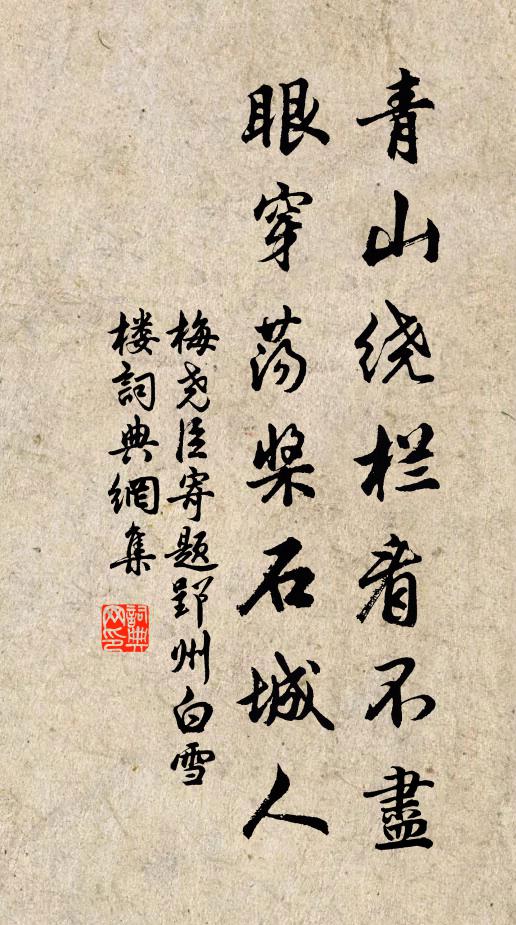 青山绕栏看不盡
眼穿荡桨石城人
梅尧臣寄题郢州白雪
楼詞典網集
詞典网印